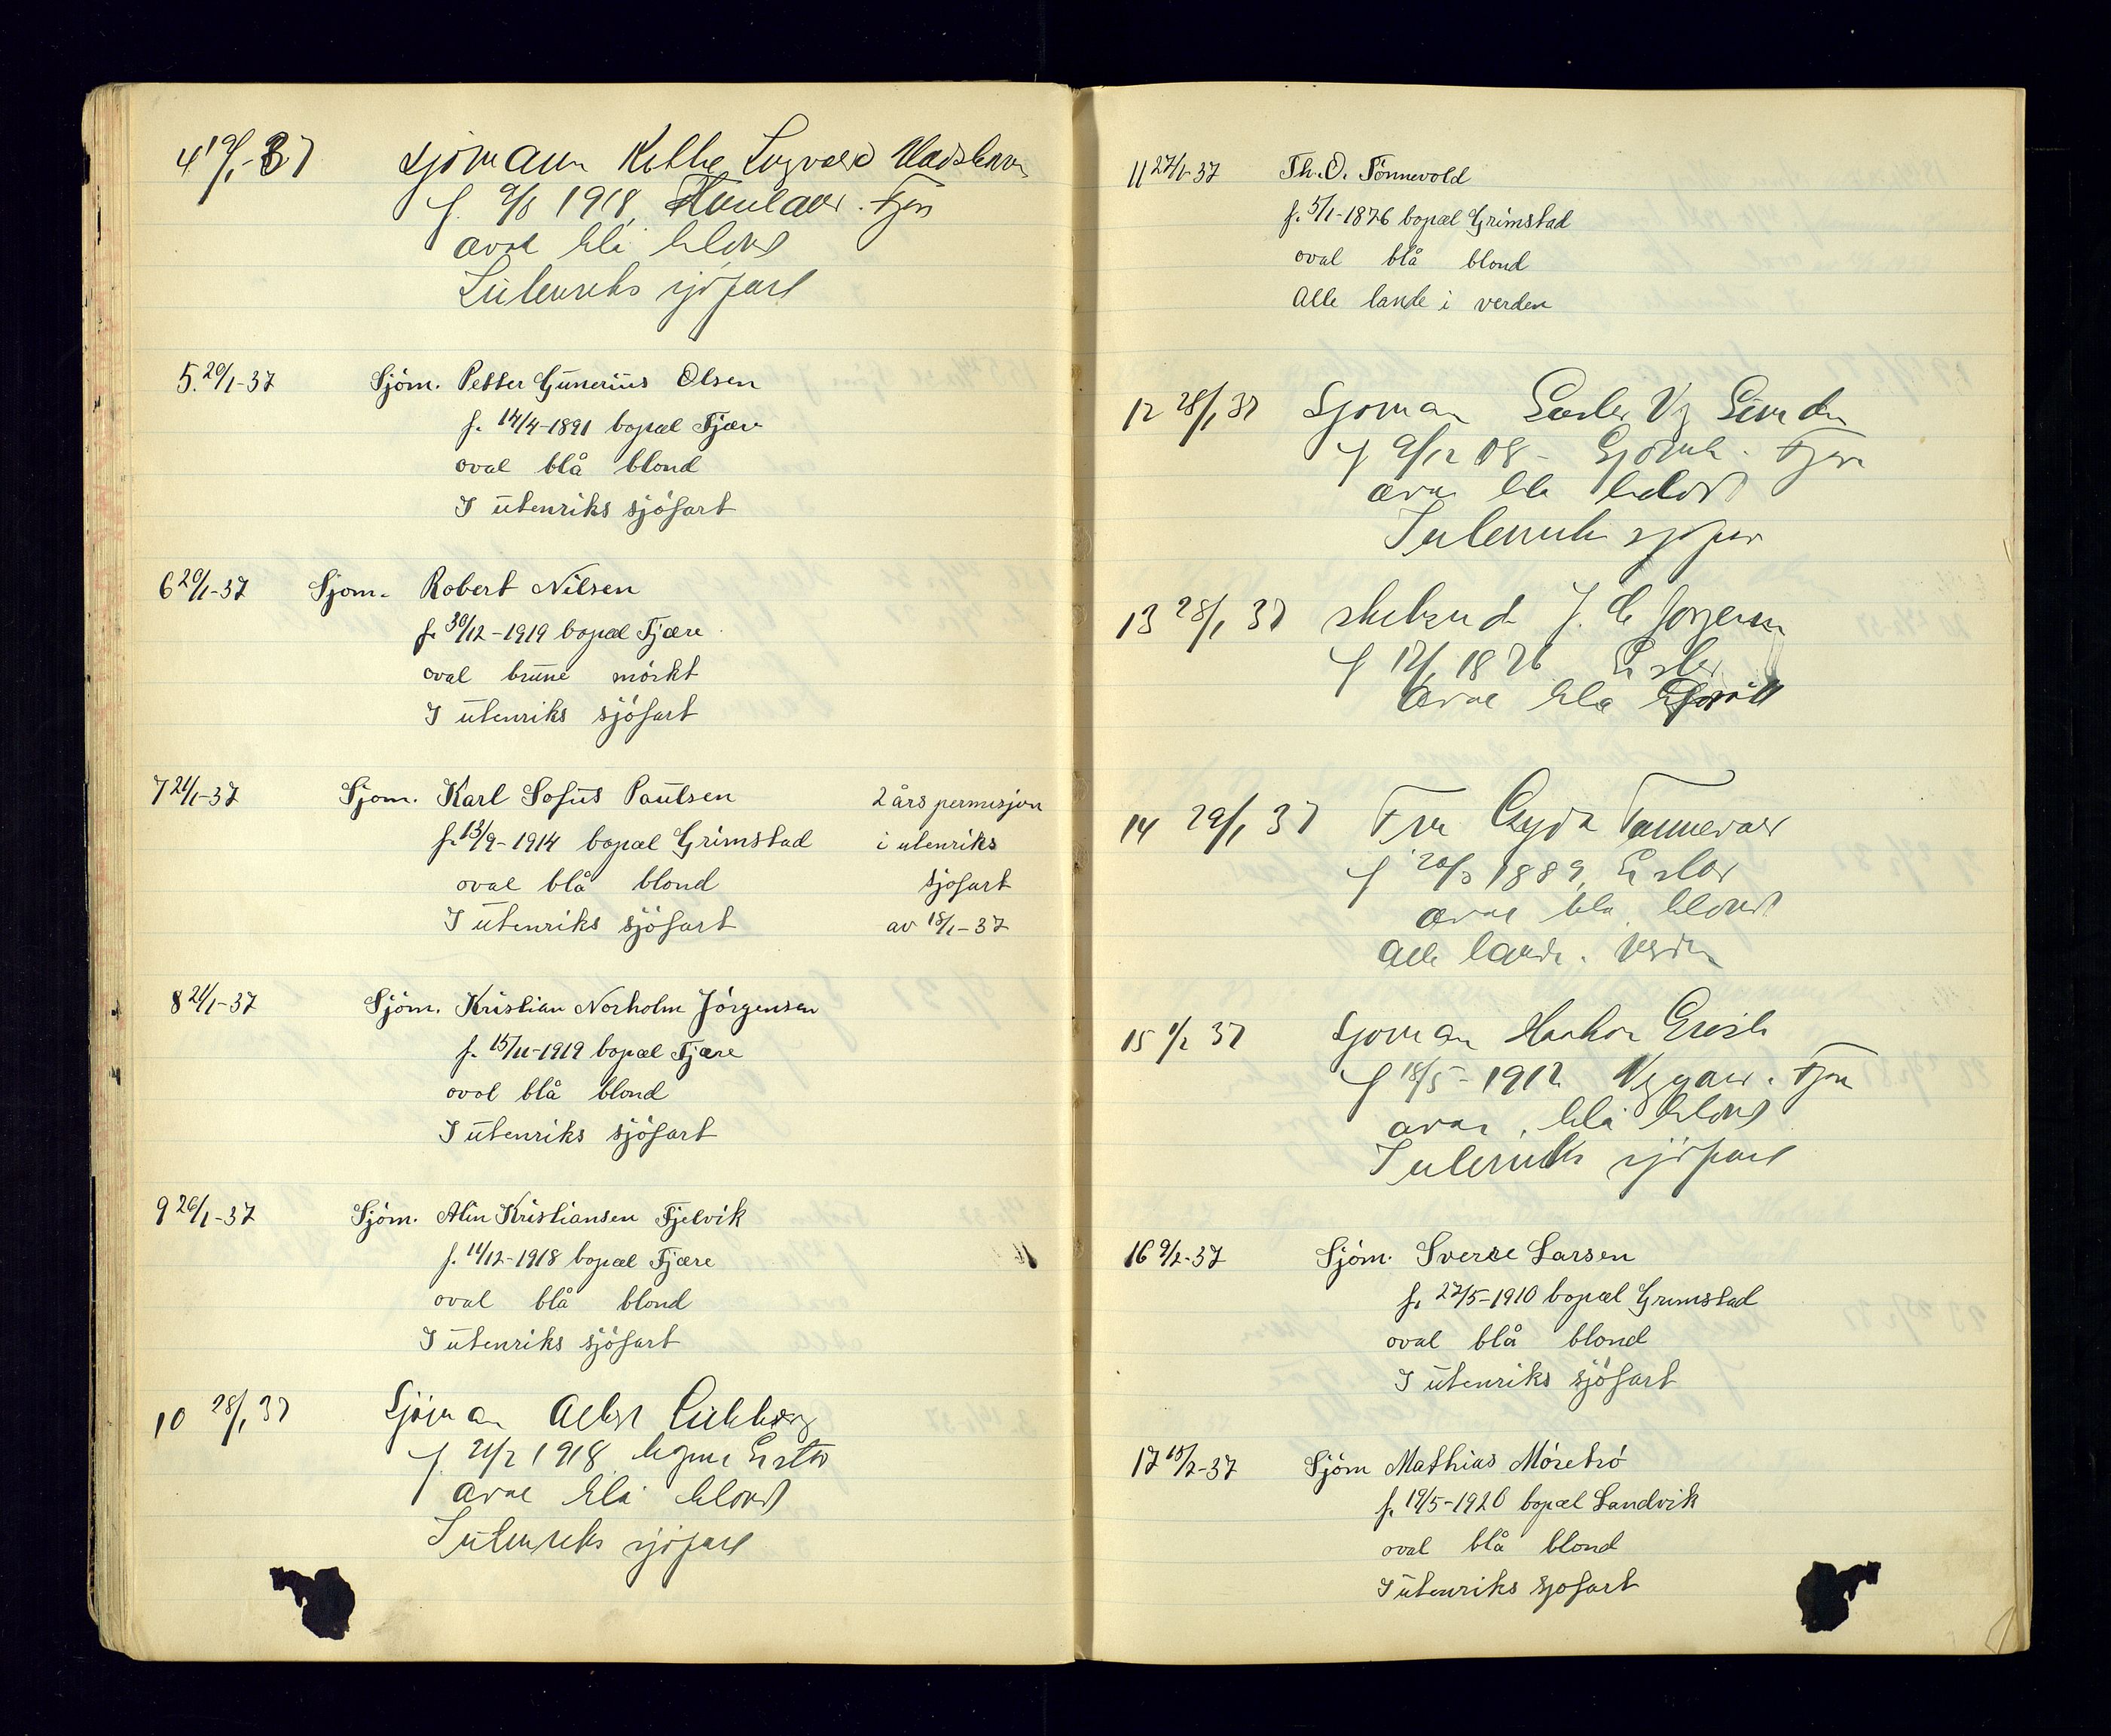 4 19/1-37 sjömann
f. 9/8 1918
oval blå blond
I utenriks sjöfart
5. 20/1-37 Sjöm. Petter Gunerius Olsen
f. 14/4-1891 bopæl Fjære
oval blå blond
I utenriks sjöfart
6 20/1-37 Sjöm. Robert Nilsen
f. 30/12-1919 bopæl Fjære
oval brune mörkt
I utenriks sjöfart
7 21/1-37 Sjöm. Karl Sofus Paulsen 2 års permisjon
f. 13/9-1914 bopæl Grimstad i utenriks
oval blå blond sjöfart
I utenriks sjöfart av 18/1-37
8 21/1-37 Sjöm. Kristian Norholm Jörgensen
f. 15/11-1919 bopæl Fjære
oval blå blond
I utenriks sjöfart
9 26/1-37 Sjöm. Alin Kristiansen Fjelvik
f. 14/12-1918 bopæl Fjære
oval blå blond
I utenriks sjöfart
10 28/1 37 Sjöman
f. 21/2 1918
oval blå blond
I utenriks sjöfart
11 27/1-37 Th. O. Tönnevold
f. 5/1-1876 bopæl Grimstad
oval blå blond
Alle lande i verden
12 28/1 37 Sjöman
f 9/12 08
oval blå blond
I utenriks sjöfart
13 28/1 37 J.
f 12/1 1876
oval blå
14 29/1 37 Fru Gyda Tönnevold
f 20/3 1889
oval blå blond
Alle lande i verden
15 1/2 37 Sjöman Haakon
f 18/5-1912
oval blå blond
I utenriks sjöfart
16 9/2-37 Sjöm. Sverre Larsen
f. 27/5-1910 bopæl Grimstad
oval blå blond
I utenriks sjöfart
17 15/2-37 Sjöm Mathias Mörebrö
f. 19/5-1920 bopæl Landvik
oval blå blond
I utenriks sjöfart